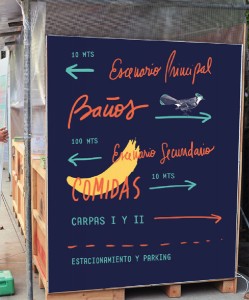 10 MTS
Escenario Principal
Baños
100 MTS
Escenario Secundario
COMIDAS
10 MTS
CARPAS I Y II
ESTACIONAMIENTO Y PARKING